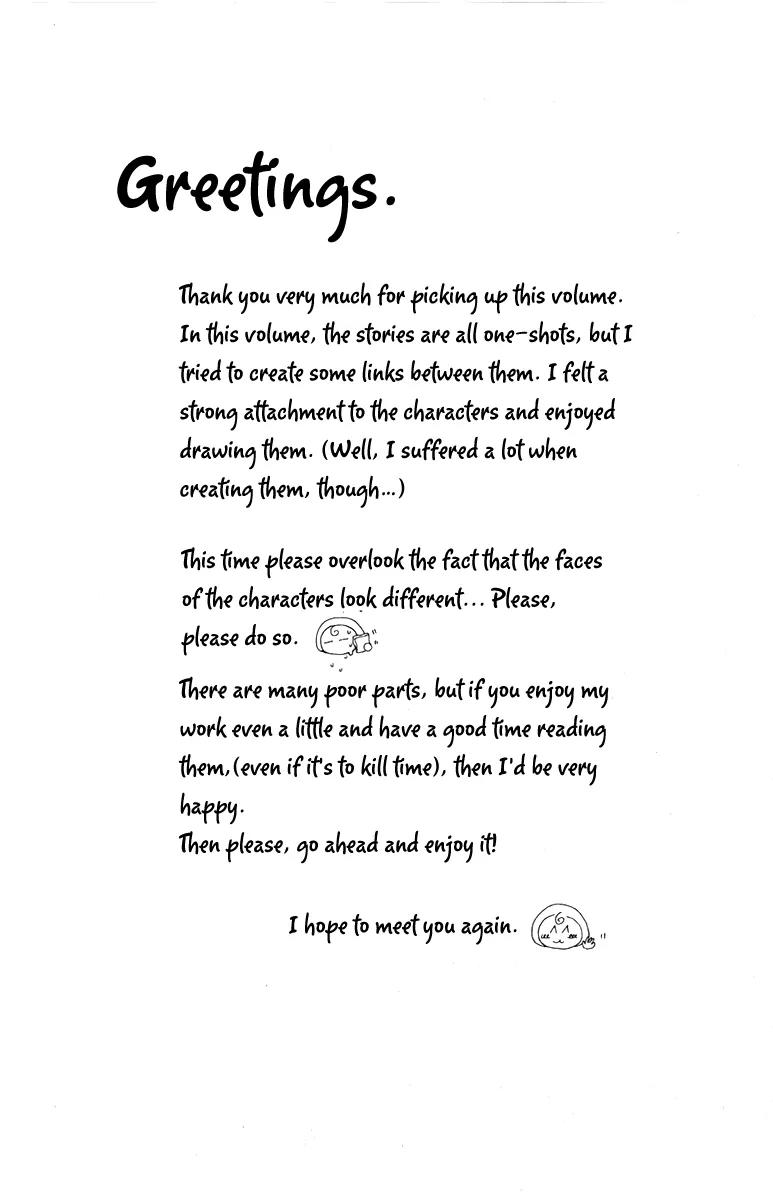 Greetings.
Thank you very much for picking up this volume.
In this volume, the stories are all one-shots, but I
tried to create some links between them. I felt a
strong attachment to the characters and enjoyed
drawing them. (Well, I suffered a lot when
creating them, though...)
This time please overlook the fact that the faces
of the characters look different... Please,
please do so.
There are many poor parts, but if you enjoy my
work even a little and have a good time reading
them,(even if it's to kill time), then I'd be very
happy.
Then please, go ahead and enjoy it!
I hope to meet you again.